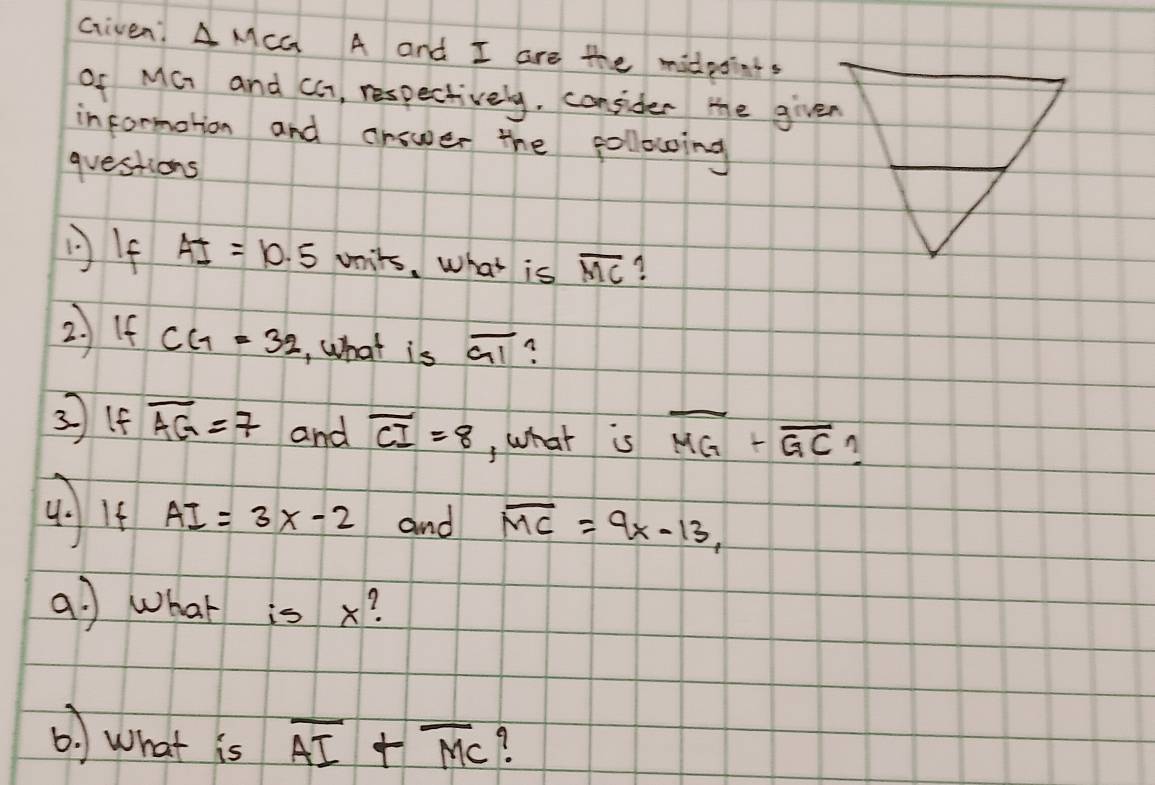 Given: Δ MCG A and I are the midpoints
of MG and CG, respectively. Consider the given
information and answer the following
questions
1.) If AI = 10.5 units, what is M̅C̅?
2.) If CG = 32, what is G̅I̅?
3.) If A̅G̅ = 7 and C̅I̅ = 8, what is M̅G̅ + G̅C̅?
4.) If AI = 3x - 2 and M̅C̅ = 9x - 13,
a.) What is x?
b.) What is A̅I̅ + M̅C̅?